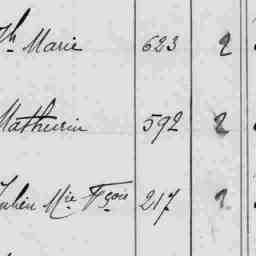 Marie 623 2
Mathurin 592 2
Julien Mie Fçois 217 2